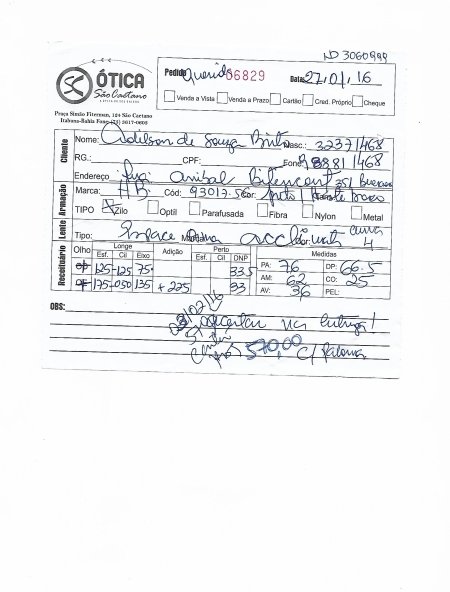 ND 3060999
ÓTICA
São Caetano
Praça Simão Fiterman, 124 São Caetano
Itabuna-Bahia Fone (73) 3617-0605
Pedido Querido 06829 Data: 27/01/16
Venda a Vista Venda a Prazo Cartão Cred. Próprio Cheque
Cliente
Nome: Adilson de Souza Brito Nasc.: 32371468
RG.: CPF: Fone: 988811468
Endereço: Rua Anibal Bitencourt 351
Armação
Marca: HB Cód: 93017.56 Cor: Preto
TIPO Zilo Optil Parafusada Fibra Nylon Metal
Lente
Tipo: Espace
4
Receituário
Olho Longe Adição Perto DNP Medidas
Esf. Cil Eixo Esf. Cil
125 -125 75 33.5 PA: 76 DP: 66.5
175 -050 135 +225 33 AM: 62 CO: 25
AV: 36 PEL:
OBS:
03/02/16
na entrega!
570,00 c/ Paloma